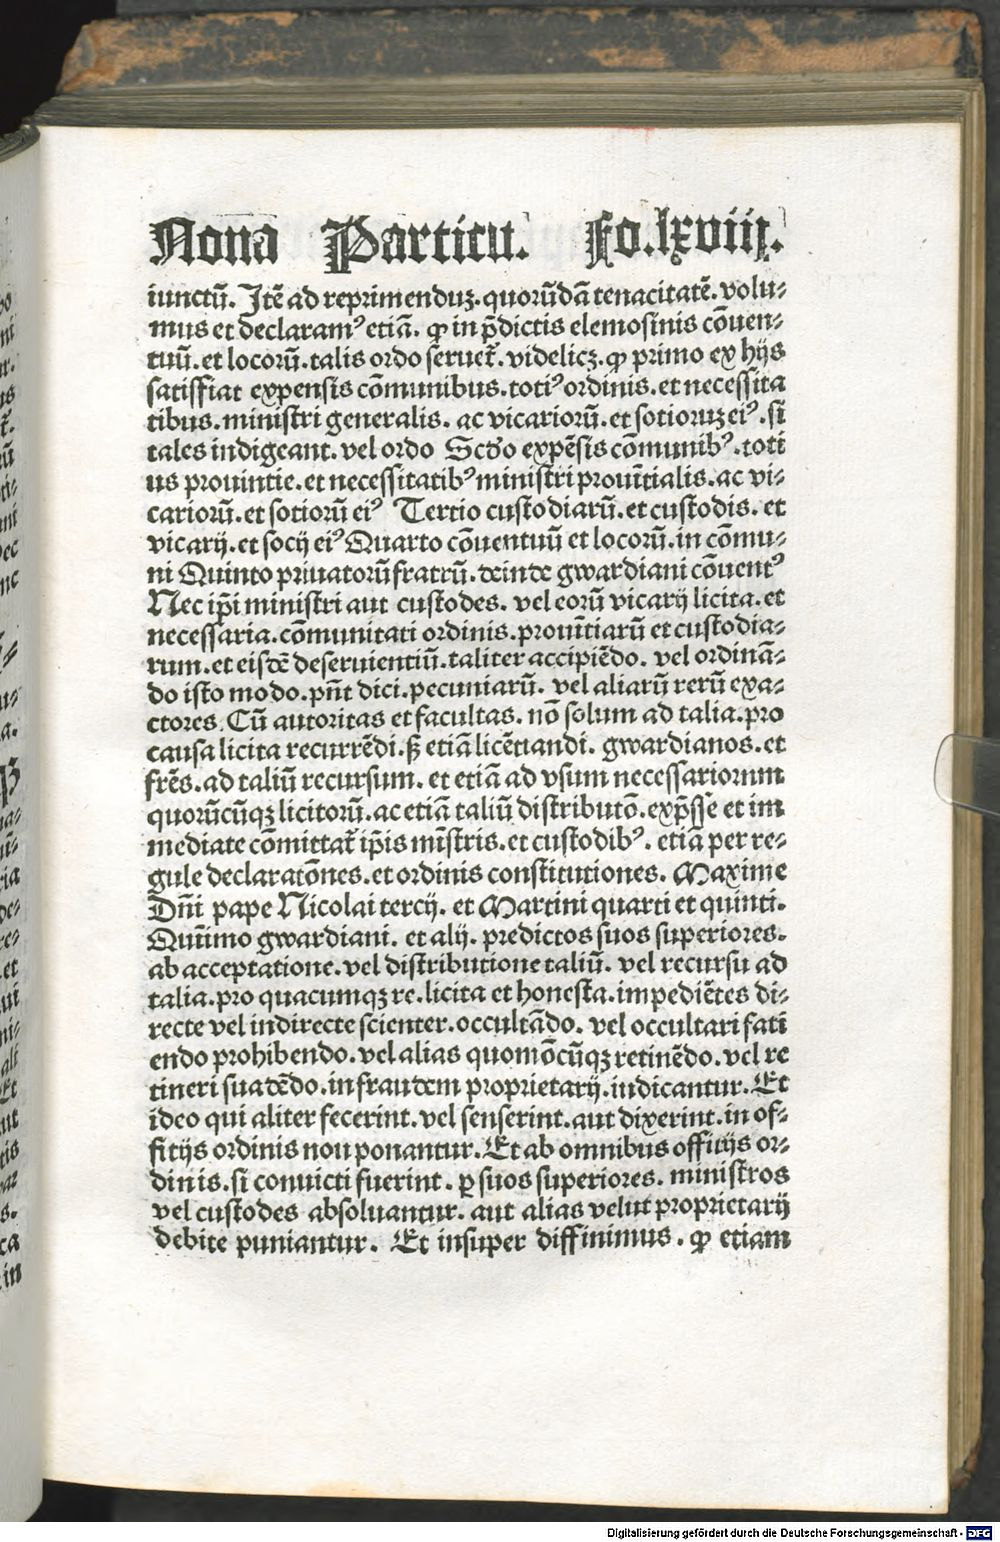 Nona Particu. Fo.lxviij.
iunctū. Itē ad reprimenduꝫ. quorūdā tenacitatē. volu-
mus et declaramꝰ etiā. ꝙ in p̄dictis elemosinis cōuen-
tuū. et locorū. talis ordo seruet̄. videlicꝫ. ꝙ primo ex hijs
satisfiat expensis cōmunibus. totiꝰ ordinis. et necessita
tibus. ministri generalis. ac vicariorū. et sotioruꝫ eiꝰ. si
tales indigeant. vel ordo Scd̄o expēsis cōmunibꝰ. toti
us prouintie. et necessitatibꝰ ministri prouītialis. ac vi-
cariorū. et sotiorū eiꝰ Tertio custodiarū. et custodis. et
vicarij. et socij eiꝰ Quarto cōuentuū et locorū. in cōmu-
ni Quinto priuatorū fratrū. deinde gwardiani cōuentꝰ
Nec ip̄i ministri aut custodes. vel eorū vicarij licita. et
necessaria. cōmunitati ordinis. prouītiarū et custodia-
rum. et eisdē deseruientiū. taliter accipiēdo. vel ordinā-
do isto modo. pn̄t dici. pecuniarū. vel aliarū rerū exa-
ctores. Cū autoritas et facultas. nō solum ad talia. pro
causa licita recurrēdi. ꝫ etiā licētiandi. gwardianos. et
fr̄es. ad taliū recursum. et etiā ad vsum necessariorum
quorūcūqꝫ licitorū. ac etiā taliū distributō. exp̄sse et im
mediate cōmittat̄ ip̄is mīstris. et custodibꝰ. etiā per re-
gule declaratōnes. et ordinis constitutiones. Maxime
Dn̄i pape Nicolai tercij. et Martini quarti et quinti.
Quīimo gwardiani. et alij. predictos suos superiores.
ab acceptatione. vel distributione taliū. vel recursu ad
talia. pro quacumqꝫ re. licita et honesta. impediētes di-
recte vel indirecte scienter. occultādo. vel occultari fati
endo prohibendo. vel alias quomōcūqꝫ retinēdo. vel re
tineri suadēdo. in fraudem proprietarij. iudicantur. Et
ideo qui aliter fecerint. vel senserint. aut dixerint. in of-
fitijs ordinis non ponantur. Et ab omnibus officijs or-
dinis. si conuicti fuerint. ꝑ suos superiores. ministros
vel custodes absoluantur. aut alias velut proprietarij
debite puniantur. Et insuper diffinimus. ꝙ etiam
Digitalisierung gefördert durch die Deutsche Forschungsgemeinschaft - DFG